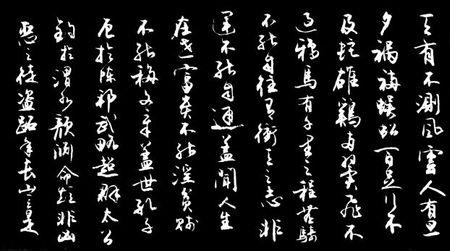 天有不測風雲人有旦
夕禍福蜈蚣百足行不
及蛇雄鷄兩翼飛不
過鴉馬有千里之程無騎
不能自往人有衝天之志非
運不能自通蓋聞人生
在世富貴不能淫貧賤
不能移文章蓋世孔子
厄於陳邦武略超群太公
釣於渭水顏淵命短非凶
惡之徒盜跖年長豈是